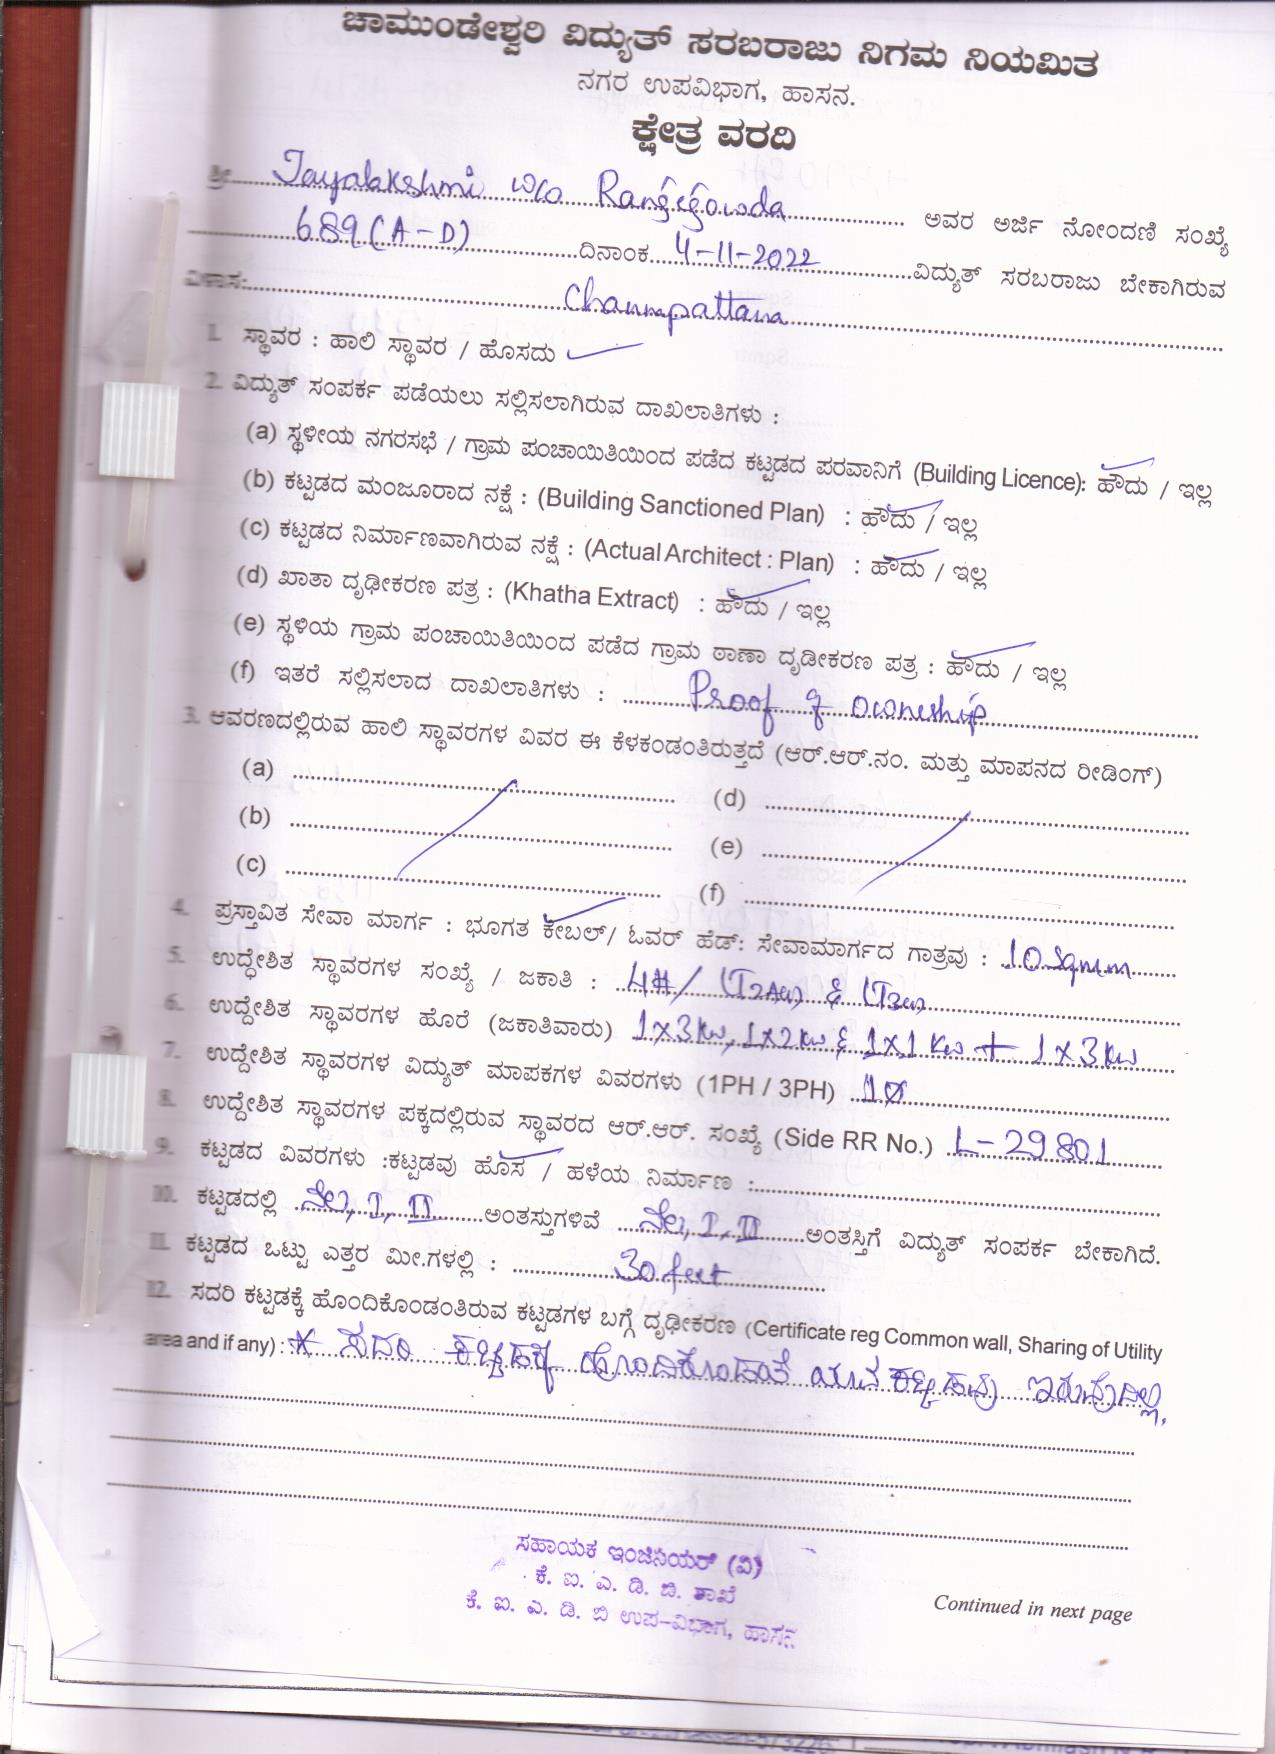 ಚಾಮುಂಡೇಶ್ವರಿ ವಿದ್ಯುತ್ ಸರಬರಾಜು ನಿಗಮ ನಿಯಮಿತ
ನಗರ ಉಪವಿಭಾಗ, ಹಾಸನ.
ಕ್ಷೇತ್ರ ವರದಿ
ಶ್ರೀ Jayalakshmi w/o Rangegowda ಅವರ ಅರ್ಜಿ ನೋಂದಣಿ ಸಂಖ್ಯೆ
689(A-D) ದಿನಾಂಕ 4-11-2022 ವಿದ್ಯುತ್ ಸರಬರಾಜು ಬೇಕಾಗಿರುವ
ವಿಳಾಸ: Channpattana
1. ಸ್ಥಾವರ : ಹಾಲಿ ಸ್ಥಾವರ / ಹೊಸದು
2. ವಿದ್ಯುತ್ ಸಂಪರ್ಕ ಪಡೆಯಲು ಸಲ್ಲಿಸಲಾಗಿರುವ ದಾಖಲಾತಿಗಳು :
(a) ಸ್ಥಳೀಯ ನಗರಸಭೆ / ಗ್ರಾಮ ಪಂಚಾಯಿತಿಯಿಂದ ಪಡೆದ ಕಟ್ಟಡದ ಪರವಾನಿಗೆ (Building Licence): ಹೌದು / ಇಲ್ಲ
(b) ಕಟ್ಟಡದ ಮಂಜೂರಾದ ನಕ್ಷೆ : (Building Sanctioned Plan) : ಹೌದು / ಇಲ್ಲ
(c) ಕಟ್ಟಡದ ನಿರ್ಮಾಣವಾಗಿರುವ ನಕ್ಷೆ : (Actual Architect : Plan) : ಹೌದು / ಇಲ್ಲ
(d) ಖಾತಾ ದೃಢೀಕರಣ ಪತ್ರ : (Khatha Extract) : ಹೌದು / ಇಲ್ಲ
(e) ಸ್ಥಳಿಯ ಗ್ರಾಮ ಪಂಚಾಯಿತಿಯಿಂದ ಪಡೆದ ಗ್ರಾಮ ಠಾಣಾ ದೃಡೀಕರಣ ಪತ್ರ : ಹೌದು / ಇಲ್ಲ
(f) ಇತರೆ ಸಲ್ಲಿಸಲಾದ ದಾಖಲಾತಿಗಳು : Proof of ownership
3. ಆವರಣದಲ್ಲಿರುವ ಹಾಲಿ ಸ್ಥಾವರಗಳ ವಿವರ ಈ ಕೆಳಕಂಡಂತಿರುತ್ತದೆ (ಆರ್.ಆರ್.ನಂ. ಮತ್ತು ಮಾಪನದ ರೀಡಿಂಗ್)
(a) (d)
(b) (e)
(c) (f)
4. ಪ್ರಸ್ತಾವಿತ ಸೇವಾ ಮಾರ್ಗ : ಭೂಗತ ಕೇಬಲ್/ ಓವರ್ ಹೆಡ್: ಸೇವಾಮಾರ್ಗದ ಗಾತ್ರವು : 10 sqmm
5. ಉದ್ಧೇಶಿತ ಸ್ಥಾವರಗಳ ಸಂಖ್ಯೆ / ಜಕಾತಿ : 4#/ &
6. ಉದ್ದೇಶಿತ ಸ್ಥಾವರಗಳ ಹೊರೆ (ಜಕಾತಿವಾರು) 1x3kw, 1x2kw & 1x1 kw + 1x3kw
7. ಉದ್ದೇಶಿತ ಸ್ಥಾವರಗಳ ವಿದ್ಯುತ್ ಮಾಪಕಗಳ ವಿವರಗಳು (1PH / 3PH) 1Ø
8. ಉದ್ದೇಶಿತ ಸ್ಥಾವರಗಳ ಪಕ್ಕದಲ್ಲಿರುವ ಸ್ಥಾವರದ ಆರ್.ಆರ್. ಸಂಖ್ಯೆ (Side RR No.) L-29801
9. ಕಟ್ಟಡದ ವಿವರಗಳು :ಕಟ್ಟಡವು ಹೊಸ / ಹಳೆಯ ನಿರ್ಮಾಣ :
10. ಕಟ್ಟಡದಲ್ಲಿ ನೆಲ, I, II ಅಂತಸ್ತುಗಳಿವೆ ನೆಲ, I, II ಅಂತಸ್ತಿಗೆ ವಿದ್ಯುತ್ ಸಂಪರ್ಕ ಬೇಕಾಗಿದೆ.
11. ಕಟ್ಟಡದ ಒಟ್ಟು ಎತ್ತರ ಮೀ.ಗಳಲ್ಲಿ : 30 feet
12. ಸದರಿ ಕಟ್ಟಡಕ್ಕೆ ಹೊಂದಿಕೊಂಡಂತಿರುವ ಕಟ್ಟಡಗಳ ಬಗ್ಗೆ ದೃಢೀಕರಣ (Certificate reg Common wall, Sharing of Utility
area and if any) : * ಸದರಿ ಕಟ್ಟಡಕ್ಕೆ ಹೊಂದಿಕೊಂಡಂತೆ ಯಾವ ಕಟ್ಟಡವು ಇರುವುದಿಲ್ಲ.
ಸಹಾಯಕ ಇಂಜಿನಿಯರ್ (ವಿ)
ಕೆ. ಐ. ಎ. ಡಿ. ಬಿ. ಶಾಖೆ
ಕೆ. ಐ. ಎ. ಡಿ. ಬಿ ಉಪ-ವಿಭಾಗ, ಹಾಸನ
Continued in next page